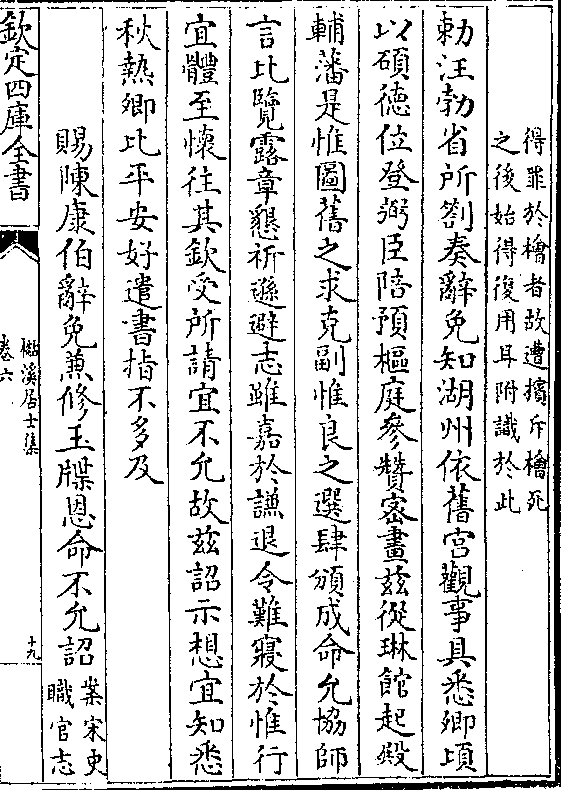 得罪於檜者故遭擯斥檜死
之後始得復用耳附識於此
勅汪勃省所劄奏辭免知湖州依舊宮觀事具悉卿頃
以碩德位登弼臣陪預樞庭參贊密畫兹從琳館起殿
輔藩是惟圖舊之求克副惟良之選肆頒成命允協師
言比覽露章懇祈遜避志雖嘉於謙退令難寢於惟行
宜體至懷往其欽受所請宜不允故兹詔示想宜知悉
秋熱卿比平安好遣書指不多及
賜陳康伯辭免兼修玉牒恩命不允詔
案宋史
職官志
欽定四庫全書
檆溪居士集
卷六
十九